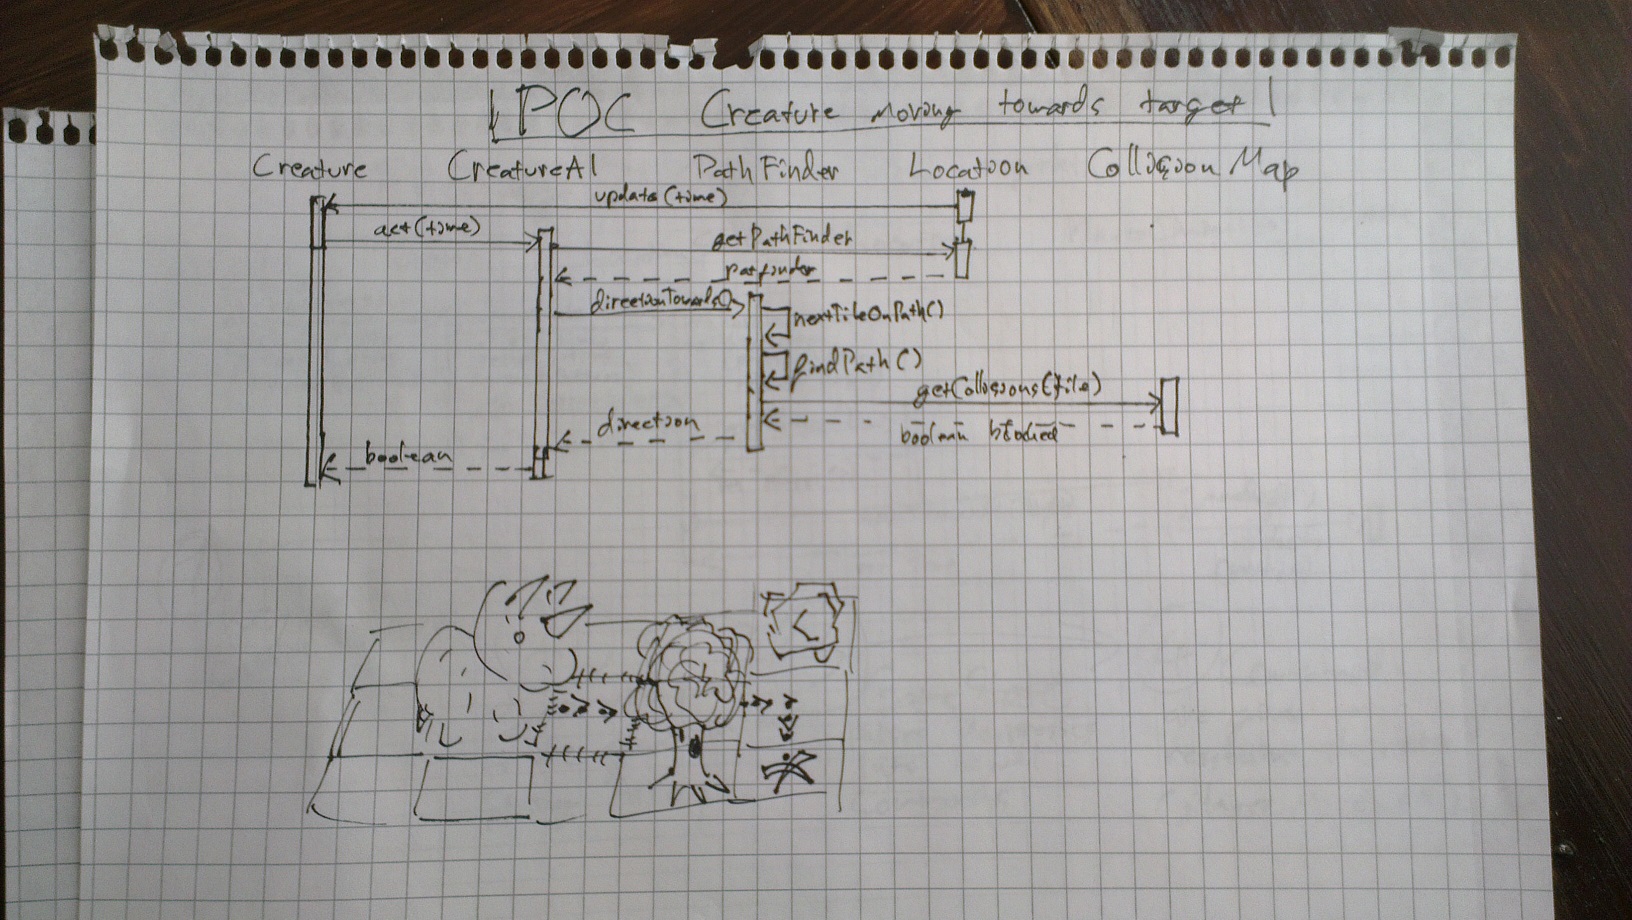 POC Creature moving towards target
Creature CreatureAI PathFinder Location Collision Map
update(time)
act(time)
getPathFinder
patfinder
directionTowards()
nextTileOnPath()
findPath()
getCollisions(tile)
boolean blocked
direction
boolean